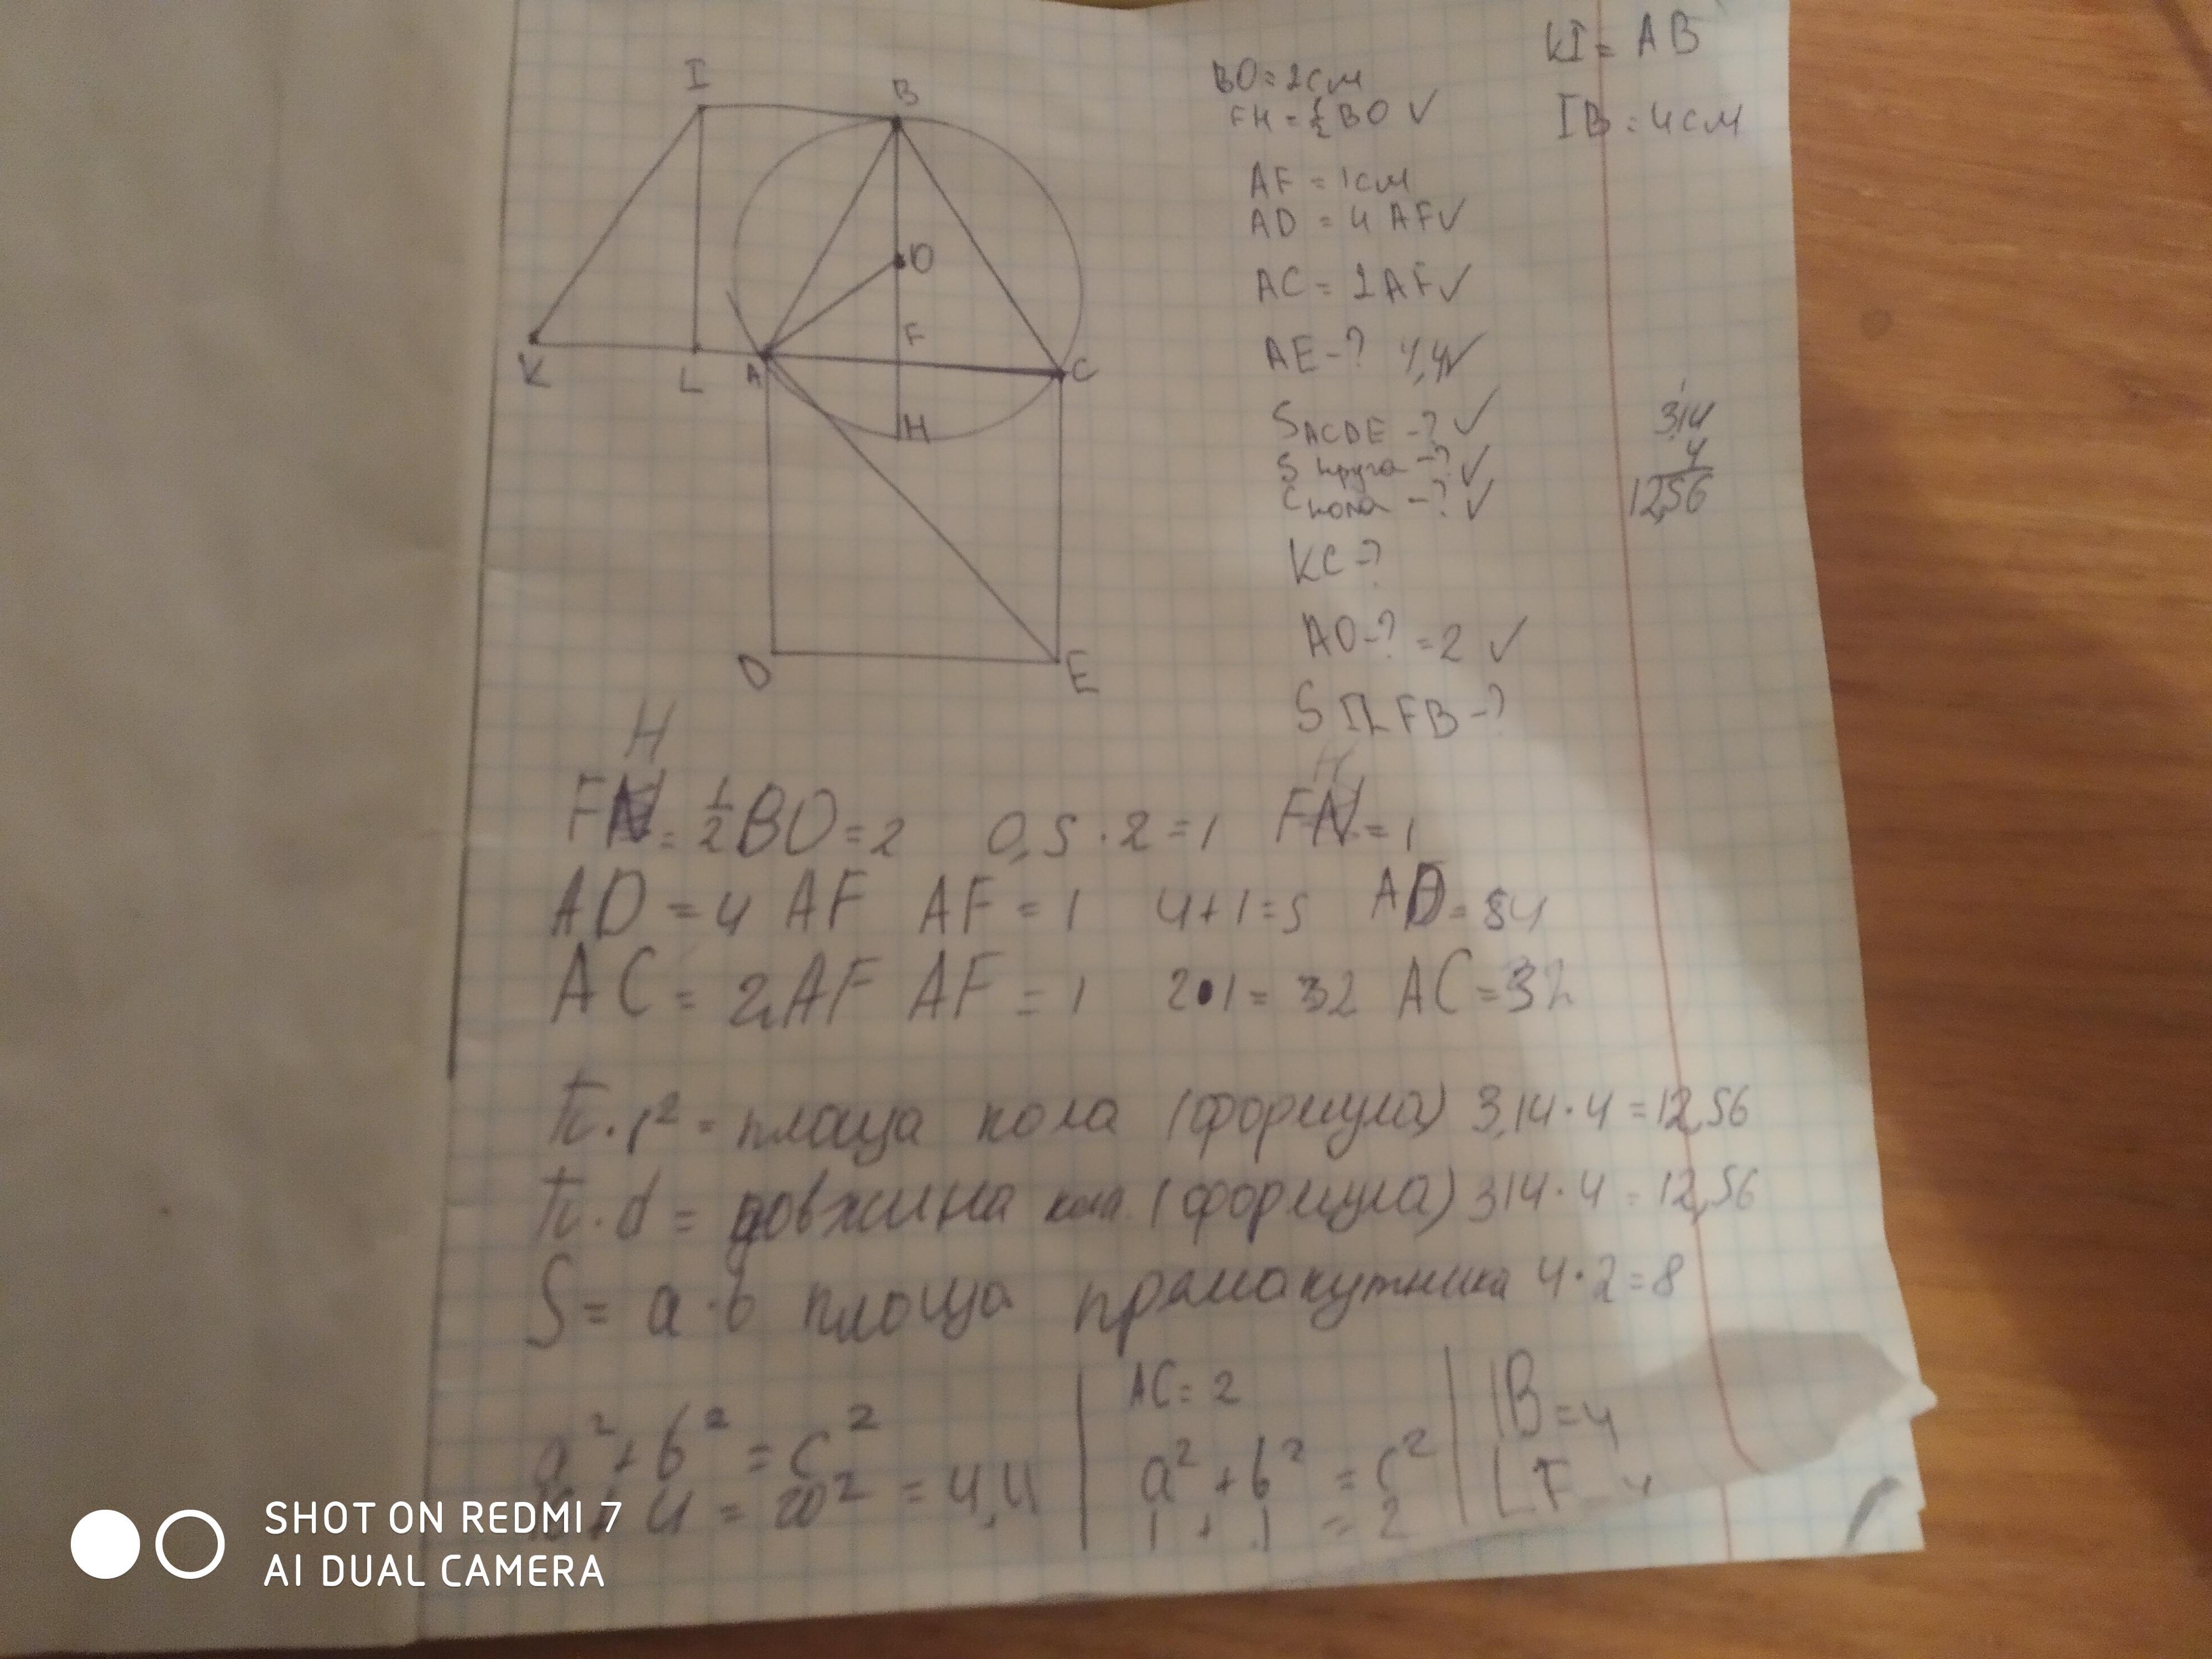 I
B
O
F
K
L
A
C
H
D
E
BO = 2см
FH = 1/2 BO ✓
AF = 1см
AD = 4 AF ✓
AC = 2AF ✓
AE - ? 4,4 ✓
S ACDE - ? ✓
S круга - ? ✓
C кола - ? ✓
KC - ?
AO - ? = 2 ✓
S ILFB - ?
KI = AB
IB = 4см
3,14
4
12,56
H
FN = 1/2 BO = 2 0,5 · 2 = 1 FN = 1
AD = 4 AF AF = 1 4+1=5 AD = 54
AC = 2AF AF = 1 2•1 = 32 AC = 32
π · r² = площа кола (формула) 3,14 · 4 = 12,56
π · d = довжина кола (формула) 314 · 4 = 12,56
S = a · b площа прямокутника 4 · 2 = 8
a² + b² = c²
4 = 20² = 4,4
AC = 2
a² + b² = c²
1 + 1 = 2
IB = 4
LF
SHOT ON REDMI 7
AI DUAL CAMERA